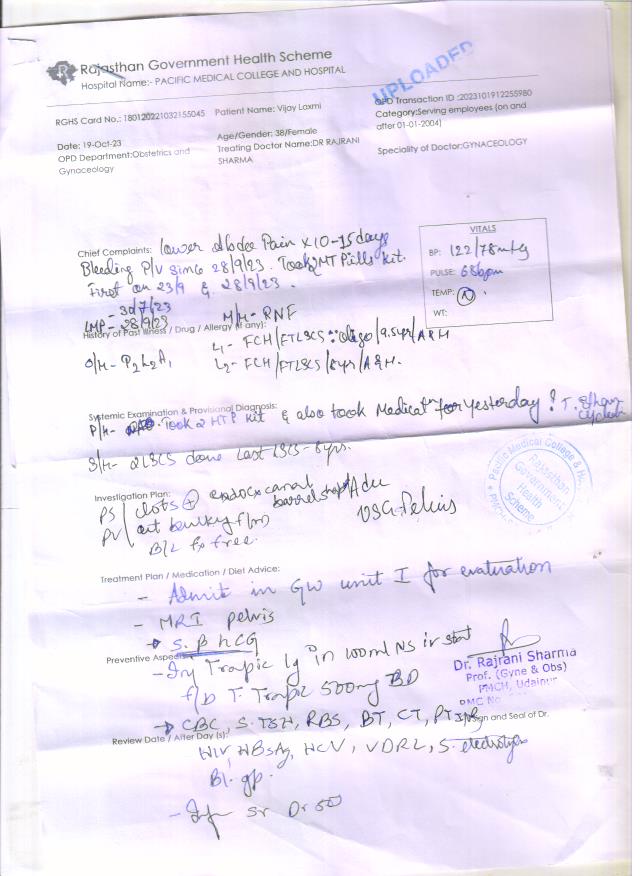 Rajasthan Government Health Scheme
Hospital Name:- PACIFIC MEDICAL COLLEGE AND HOSPITAL
UPLOADED
RGHS Card No.: 180120221032155045 Patient Name: Vijay Laxmi
OPD Transaction ID :2023101912255980
Category:Serving employees (on and after 01-01-2004)
Date: 19-Oct-23
Age/Gender: 38/Female
OPD Department:Obstetrics and Gynaceology
Treating Doctor Name:DR RAJRANI SHARMA
Speciality of Doctor:GYNACEOLOGY
VITALS
BP: 122/78 mmHg
PULSE: 68bpm
TEMP: N
WT:
Chief Complaints: lower Abdo Pain x 10-15 days
Bleeding P/V since 28/9/23. Took 2 MT Pills kit.
First on 23/9 & 28/9/23.
- 30/7/23
LMP - 28/9/23 M/H- RNF
History of Past Illness / Drug / Allergy (if any):
L1- FCH/FTLSCS oligo/9.5yr/A&H
O/H- P2L2A1 L2- FCH/FTLSCS/8yrs/A&H.
Systemic Examination & Provisional Diagnosis:
P/H- Took 2 MTP kit & also took Medication for yesterday T.
S/H- 2LSCS done Last LSCS- 8yrs.
Investigation Plan:
PS clots + endocx canal barrel shaped Adv
PV ut bulky f/m USG-Pelvis
B/L fx free.
Pacific Medical College & Hospital
Rajasthan Government Health Scheme
Treatment Plan / Medication / Diet Advice:
- Admit in GW unit I for evaluation
- MRI pelvis
→ S. β hCG
Preventive Aspects
- Inj Trapic 1g in 100ml NS iv stat
f/b T. Trapic 500mg BD
Dr. Rajrani Sharma
Prof. (Gyne & Obs)
PMCH, Udaipur
→ CBC, S. TSH, RBS, BT, CT, PT INR
Sign and Seal of Dr.
Review Date / After Day (s):
HIV, HBsAg, HCV, VDRL, S. electrolytes
Bl. gp.
- Inf Sr Dr